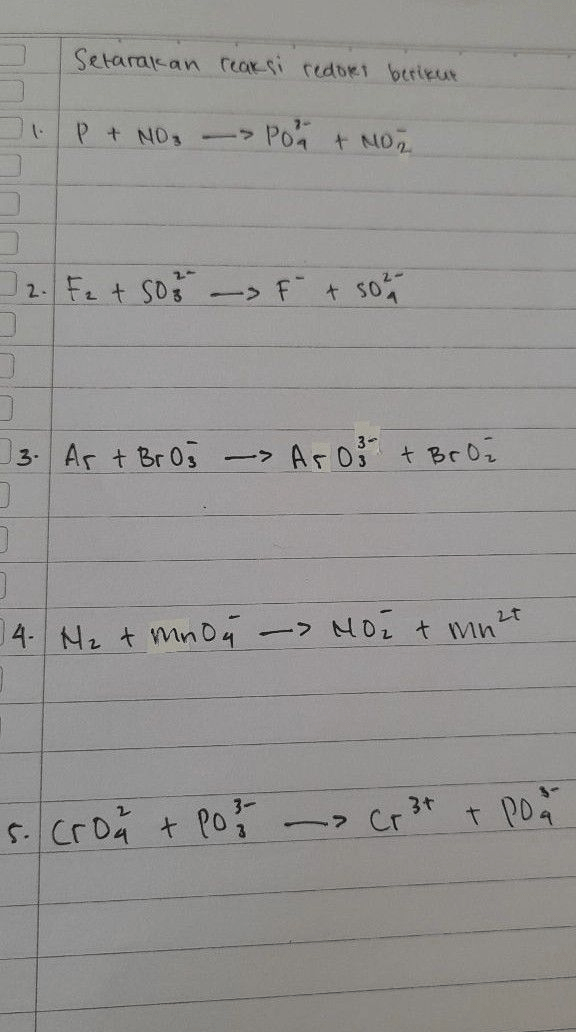 Setarakan reaksi redoks berikut
1. P + NO₃ → PO₄³⁻ + NO₂⁻
2. F₂ + SO₃²⁻ → F⁻ + SO₄²⁻
3. As + BrO₃⁻ → AsO₃³⁻ + BrO₂⁻
4. N₂ + MnO₄⁻ → NO₂⁻ + Mn²⁺
5. CrO₄² + PO₃³⁻ → Cr³⁺ + PO₄³⁻